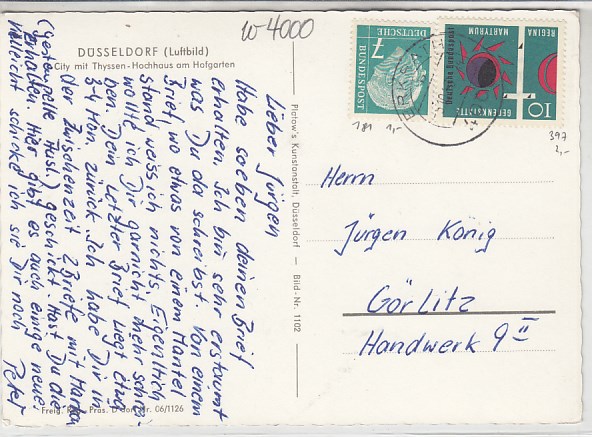 w-4000
DÜSSELDORF (Luftbild)
City mit Thyssen-Hochhaus am Hofgarten
Lieber Jürgen
Habe soeben deinen Brief
erhalten. Ich bin sehr erstaunt
was Du da schreibst. Von einem
Brief, wo etwas von einem Mantel
stand weiss ich nichts. Eigentlich
wollte ich Dir garnicht mehr schrei-
ben. Dein letzter Brief liegt etwa
3-4 Mon. zurück. Ich habe Dir in
der Zwischenzeit 2 Briefe mit Marken
(gestempelte Ausl.) geschickt. Hast Du die
erhalten. Hier gibt es auch einige neue.
Vielleicht schicke ich sie Dir noch.
Peter
Freig. Präs. D'dorf Nr. 06/1126
Platow's Kunstanstalt, Düsseldorf — Bild-Nr. 1102
7
DEUTSCHE
BUNDESPOST
REGINA
MARTYRUM
Deutsche Bundespost
GEDENKKIRCHE
10
181 1,-
397
2,-
Herrn
Jürgen König
Görlitz
Handwerk 9 II